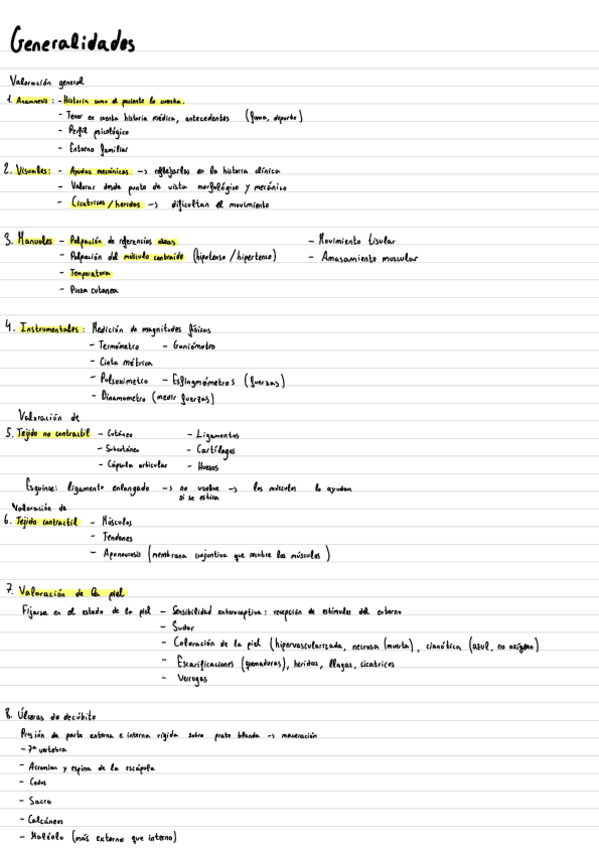 Generalidades
Valoración general
1. Anamnesis : - Historia como el paciente la cuenta.
- Tener en cuenta historia médica, antecedentes (fuma, deporte)
- Perfil psicológico
- Entorno familiar
2. Visuales: - Ayudas mecánicas -> reflejarlas en la historia clínica
- Valorar desde punto de vista morfológico y mecánico
- Cicatrices / heridas -> dificultan el movimiento
3. Manuales - Palpación de referencias óseas - Movimiento tisular
- Palpación del músculo contraído (hipotenso / hipertenso) - Amasamiento muscular
- Temperatura
- Pinza cutanea
4. Instrumentales : Medición de magnitudes físicas
- Termómetro - Goniómetro
- Cinta métrica
- Pulsoximetro - Esfingmómetros (fuerzas)
- Dinamometro (medir fuerzas)
Valoración de
5. Tejido no contractil - Cutáneo - Ligamentos
- Subcutáneo - Cartílagos
- Cápsula articular - Huesos
Esguince: ligamento enlongado -> no vuelve -> los músculos lo ayudan
si se estira
Valoración de
6. Tejido contractil - Músculos
- Tendones
- Aponeurosis (membrana conjuntiva que recubre los músculos )
7. Valoración de la piel
Fijarse en el estado de la piel - Sensibilidad exteroceptiva : recepción de estímulos del externo
- Sudor
- Coloración de la piel (hipervascularizada, necrosa (muerta) , cianótica (azul, no oxígeno)
- Escarificaciones (quemaduras), heridas, llagas, cicatrices
- Verrugas
8. Úlceras de decúbito
Presión de parte externa e interna rígida sobre parte blanda -> maceración
- 7ª vertebra
- Acromion y espina de la escápula
- Codos
- Sacro
- Calcáneos
- Maléolo (más externo que interno)